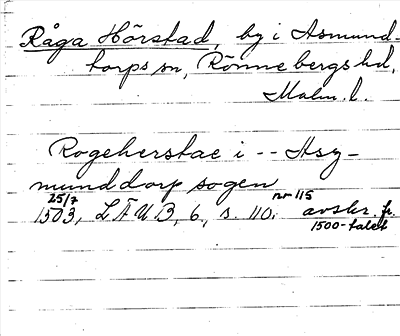 Råga Hörstad, by i Asmund-
torps sn, Rönnebergs hd,
Malm. l.
Rogeherstae i -- Asy-
munddorp sogen
25/7 nr 115
1503, LÄUB, 6, s. 110. avskr. fr.
1500-talet